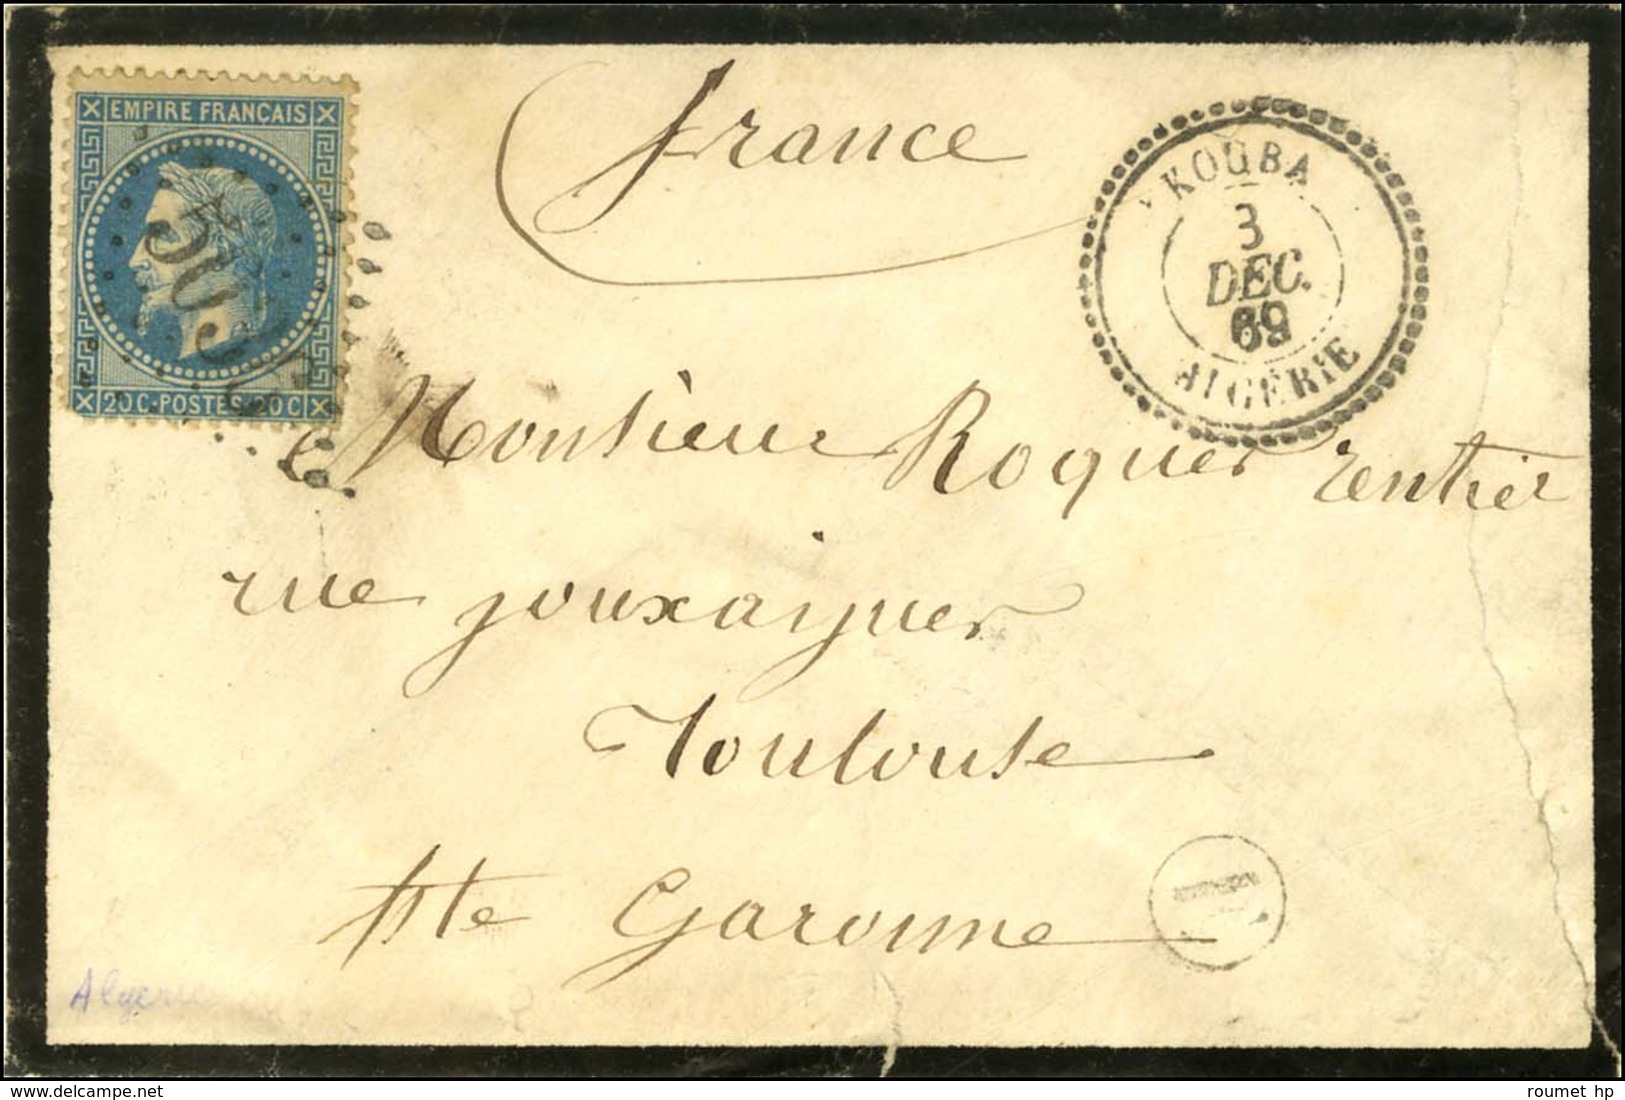 EMPIRE FRANCAIS
20 C·POSTES·20 C
France
KOUBA
3
DEC.
69
ALGERIE
Monsieur Roques rentier
rue jouxaigues
Toulouse
Hte Garonne
Algerie
roumet hp